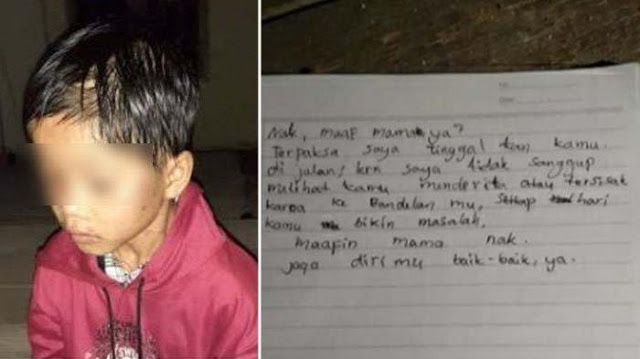 Nak, maap mama ya?
Terpaksa saya tinggal kan kamu
di jalan, krn saya tidak sanggup
mulihat kamu munderita atau tersisak
karoa ke Bandilan mu, settap hari
kamu bikin masalah.
maapin mama nak.
jaga diri mu baik-baik, ya.